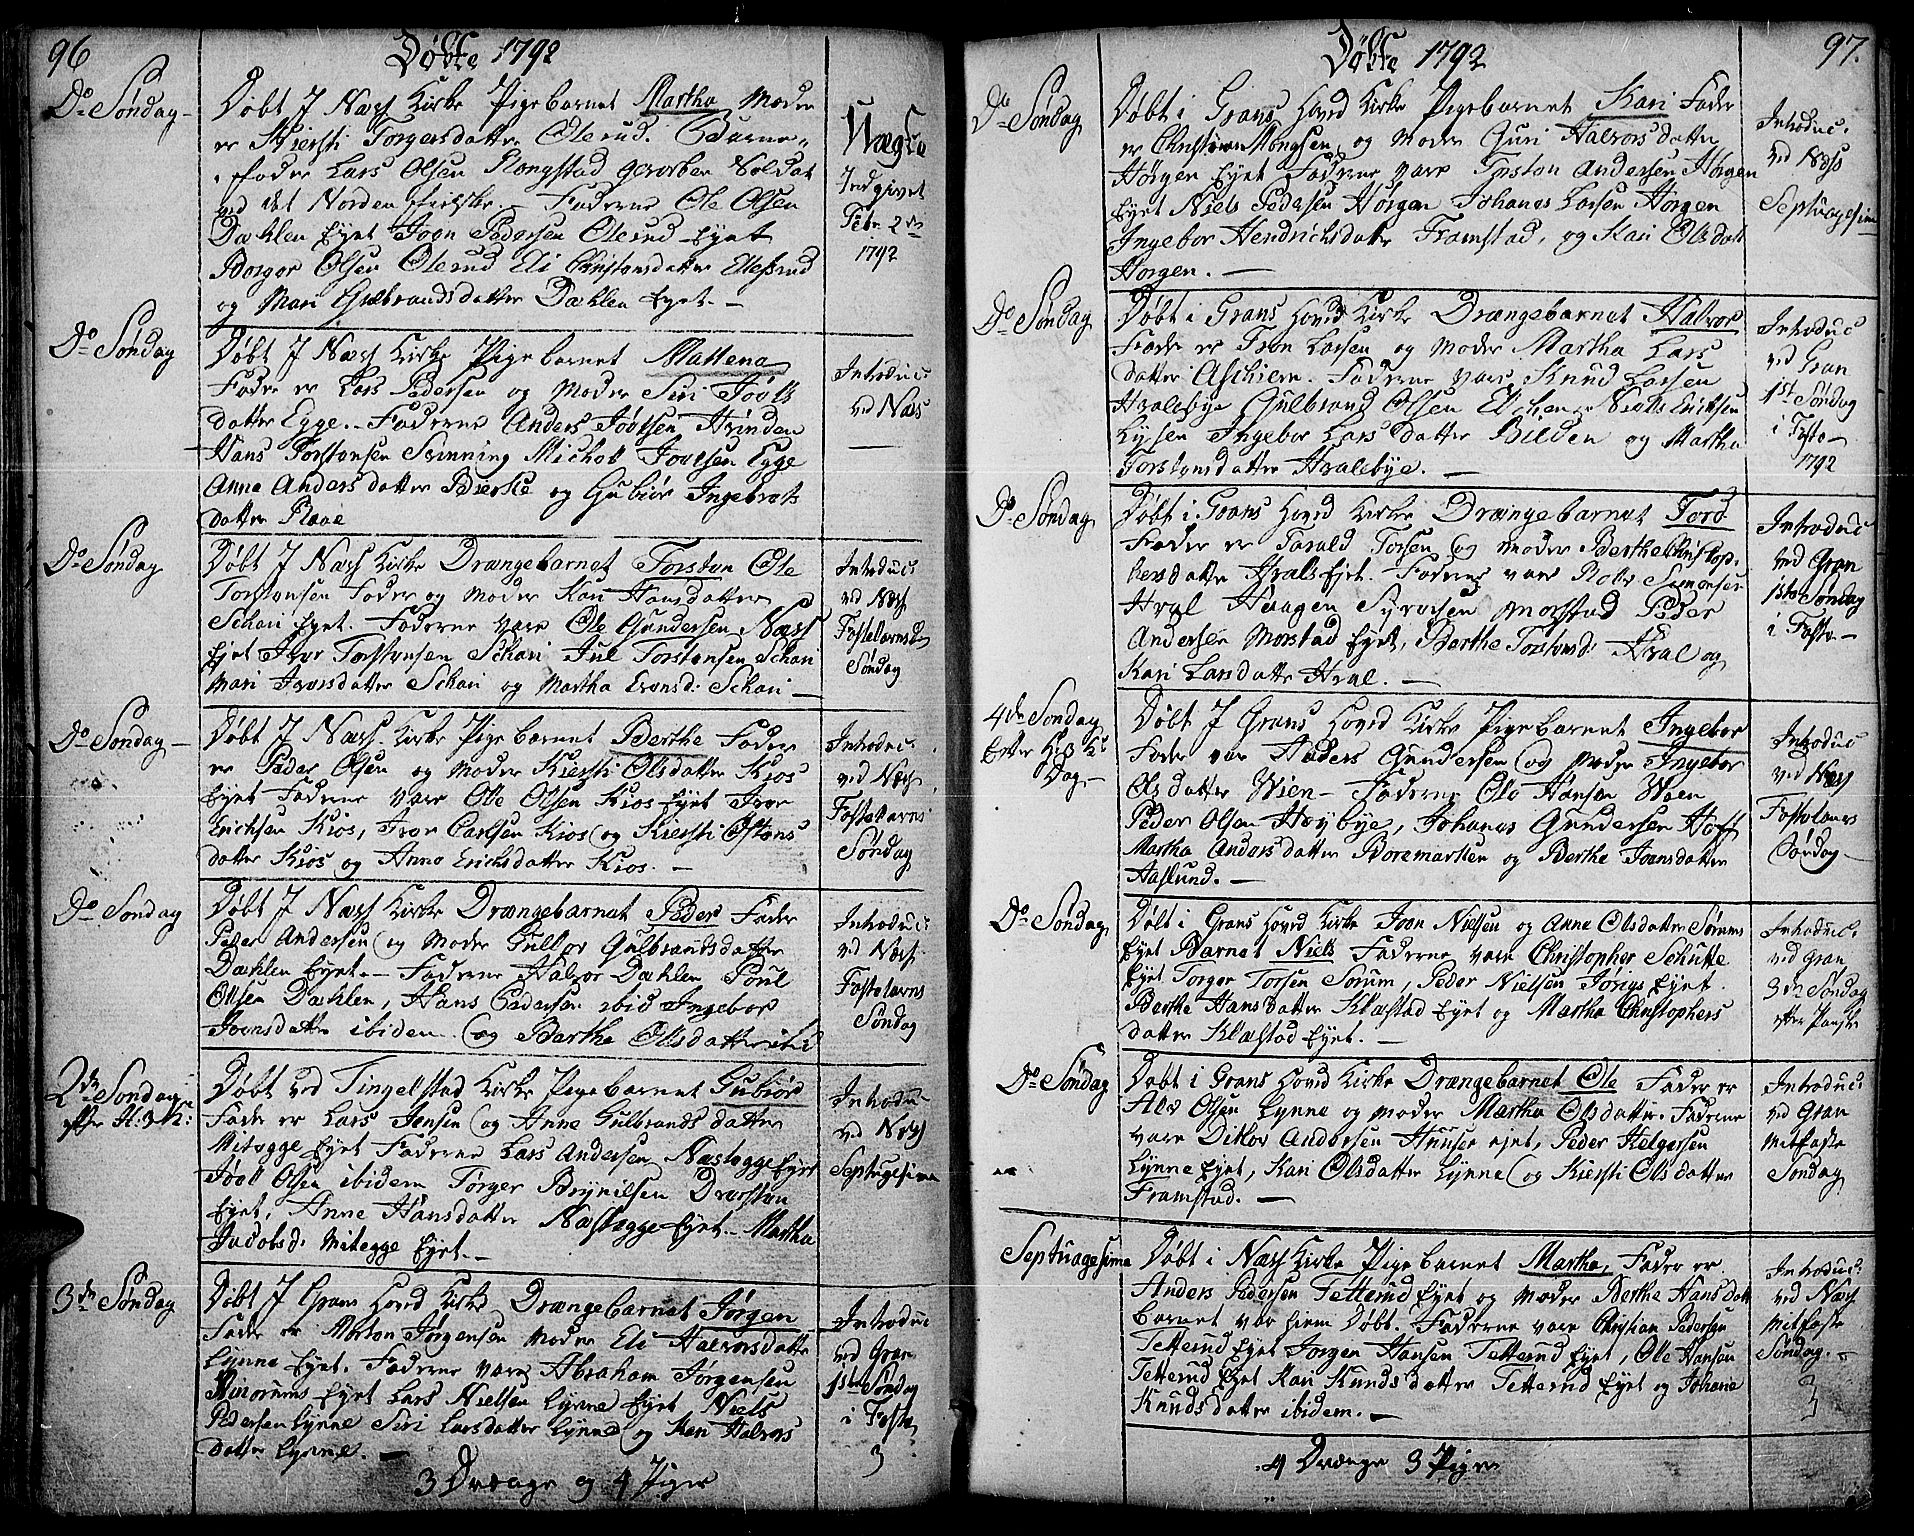 96
Døbte 1792
Do Søndag
Døbt J Næss Kirke Pigebarnet Martha Moder
er Kiersti Torgersdatter Olerud. Barne-
fader Lars Olsen Rongstad gevorben Soldat
ved det Nordenfielske. Fadderne Ole Olsen
Dæhlen Eyet Joen Pedersen Olerud Eyet
Borgor Olsen Olerud Eli Christensdatter Elesrud
og Mari Gulbrandsdatter Dæhlen Eyet. —
Uægte
Indgivet
Febr. 2den
1792
Do Søndag
Døbt J Næss Kirke Pigebarnet Mattena
Fader er Lars Pedersen og Moder Siri Joels
datter Egge. Fadderne Anders Joelsen Hvinden
Hans Torstensen Svinning Michel Joelsen Egge
Anne Andersdatter Bierke og Gubiør Ingebrets
datter
Introduc:
ved Næss
—
Do Søndag
Døbt J Næss Kirke Drængebarnet Torsten Ole
Torstensen Fader og Moder Kari Hansdatter
Schari Eyet. Fadderne vare Ole Gundersen Næss
Eyet Iver Torstensen Schari Jul Torstensen Schari
Mari Iversdatter Schari og Martha Evensd: Schari —
Introduc:
ved Næss
Fastelavns
Søndag
Do Søndag —
Døbt J Næss Kirke Pigebarnet Berthe Fader
er Peder Olsen og Moder Kiersti Olsdatter Kios
Eyet Fadderne vare Ole Olsen Kios Eyet Iver
Erichsen Kios, Iver Carlsen Kios og Kiersti Ostens
datter Kios og Anne Erichsdatter Kios. —
Introduc:
ved Næss
Fastelavns
Søndag
Do Søndag
Døbt J Næss Kirke Drængebarnet Peder Fader
Peder Andersen og Moder Gullov Gulbrandsdatter
Dæhlen Eyet. — Fadderne Halvor Dæhlen Poul
Olsen Dæhlen, Hans Pedersen ibid Ingebor
Joensdatter ibidem og Berthe Olsdatter ibid
Introduc:
ved Næss
Fastelavns
Søndag
2den Søndag
efter H: 3 K:
Døbt ved Tingelstad Kirke Pigebarnet Gubiør
Fader er Lars Jensen og Anne Gulbrandsdatter
Mitegge Eyet Fadderne Lars Andersen Næstegge Eyet
Joel Olsen ibidem Torger Brynilsen
Eyet, Anne Hansdatter Næstegge Eyet. Martha
Jacobsd: Mitegge Eyet. —
Introdu-
ved Næss
Septuagesima
3de Søndag
Døbt J Grans Hoved Kirke Drængebarnet Jørgen
Fader er Morten Jørgensen Moder Eli Halvorsdatter
Lynne Eyet. Fadderne vare Abraham Jørgensen
Eyet Lars Nielsen Lynne Eyet Niels
Pedersen Lynne Siri Larsdatter Lynne og Kari Halvors
datter Lynne. —
Introduc
ved Gran
1ste Søndag
i Faste
3
3 Drænge og 4 Piger
97.
Døbte 1792
Do Søndag
Døbt i Grans Hoved Kirke Pigebarnet Kari Fader
er Christian Mongsen og Moder Guri Halvorsdatter
Horgen Eyet Fadderne vare Torsten Andersen Horgen
Eyet Niels Pedersen Horgen Johanes Larsen Horgen
Ingebor Hendrichsdatter Framstad, og Kari Olsdatt
Horgen. —
Introduc:
ved Næss
Septuagesim
Do Søndag
Døbt i Grans Hoved Kirke Drængebarnet Halvor
Fader er Tron Larsen og Moder Martha Lars
datter Aschiem. Fadderne vare Knud Larsen
Hvalebye Gulbrand Olsen Niels Erichsen
Lysen Ingebor Larsdatter Bilden og Martha
Torstensdatter Hvalebye. —
Introduc
ved Gran
1st Søndag
i Faste —
1792
Do Søndag
Døbt i Grans Hoved Kirke Drængebarnet Tord
Fader er Tarald Torsen og Moder Berthe Christop-
hersdatter Hvals Eyet. Fadderne vare Samensen
Hval Haagen Syversen Morstad Peder
Andersen Morstad Eyet, Berthe Torstensd: Hval og
Kari Larsdatter Hval. —
Introduc
ved Gran
1ste Søndag
i Faste —
4de Søndag
Efter H: 3 K:
Dag —
Døbt J Grans Hoved Kirke Pigebarnet Ingebor
Fader var Anders Gundersen og Moder Ingebor
Olsdatter Wien — Fadderne Ole Hansen Woen
Peder Olsen Høybye, Johanes Gundersen Hoff
Martha Andersdatter Boremarken og Berthe Joensdatter
Aaslund. —
Introduc
ved Næss
Fastelavns
Søndag
Do Søndag
Døbt i Grans Hoved Kirke Joen Nielsen og Anne Olsdatter Sørums
Eyet Barnet Niels Fadderne vare Christopher Schutte
Eyet Torger Torsen Sørum, Peder Nielsen Eyet.
Berthe Hansdatter Klæstad Eyet og Martha Christophers
datter Klæstad Eyet. —
Introduc:
ved Gran
3de Søndag
efter Paaske
Do Søndag
Døbt i Grans Hoved Kirke Drængebarnet Ole Fader er
Alv Olsen Lynne og Moder Martha Olsdatter. Fadderne
vare Ditlov Andersen Eyet, Peder Helgersen
Lynne Eyet, Kari Olsdatter Lynne og Kiersti Olsdatter
Framstad. —
Introduc:
ved Gran
Mitfaste
Søndag
Septuagesima
Døbt i Næss Kirke Pigebarnet Martha, Fader er
Anders Pedersen Tetterud Eyet og Moder Berthe Hansdatt
Barnet var hiem Døbt. Fadderne vare Christian Pedersen
Tetterud Eyet Jorgen Hansen Tetterud Eyet, Ole Hansen
Tetterud Eyet Kari Knudsdatter Tetterud Eyet og Johane
Knudsdatter ibidem. —
Introduc:
ved Næss
Mitfaste
Søndag. —
3
4 Drænge 3 Piger